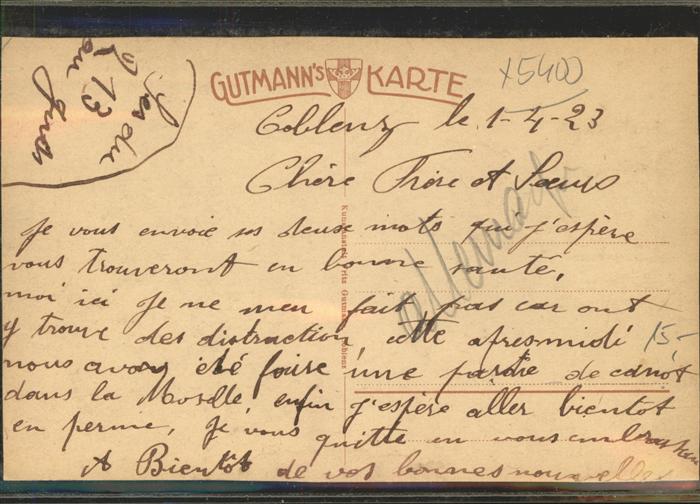 GUTMANN'S KARTE
x5400
Coblenz le 1-4-23
Chère Frère et Sœurs
Je vous envoie ses deuse mots que j'espère
vous trouveront en bonne santé,
moi ici je ne meu fait pas car ont
y trouve des distraction, cette apresmidi
nous avons été faire une partie de canot
dans la Moselle, enfin j'espère aller bientot
en perme, je vous quitte en vous embrassant
A Bientôt de vos bonnes nouvelles
allemagne
15-
13
Kunstanstalt Fritz Gutmann, Coblenz